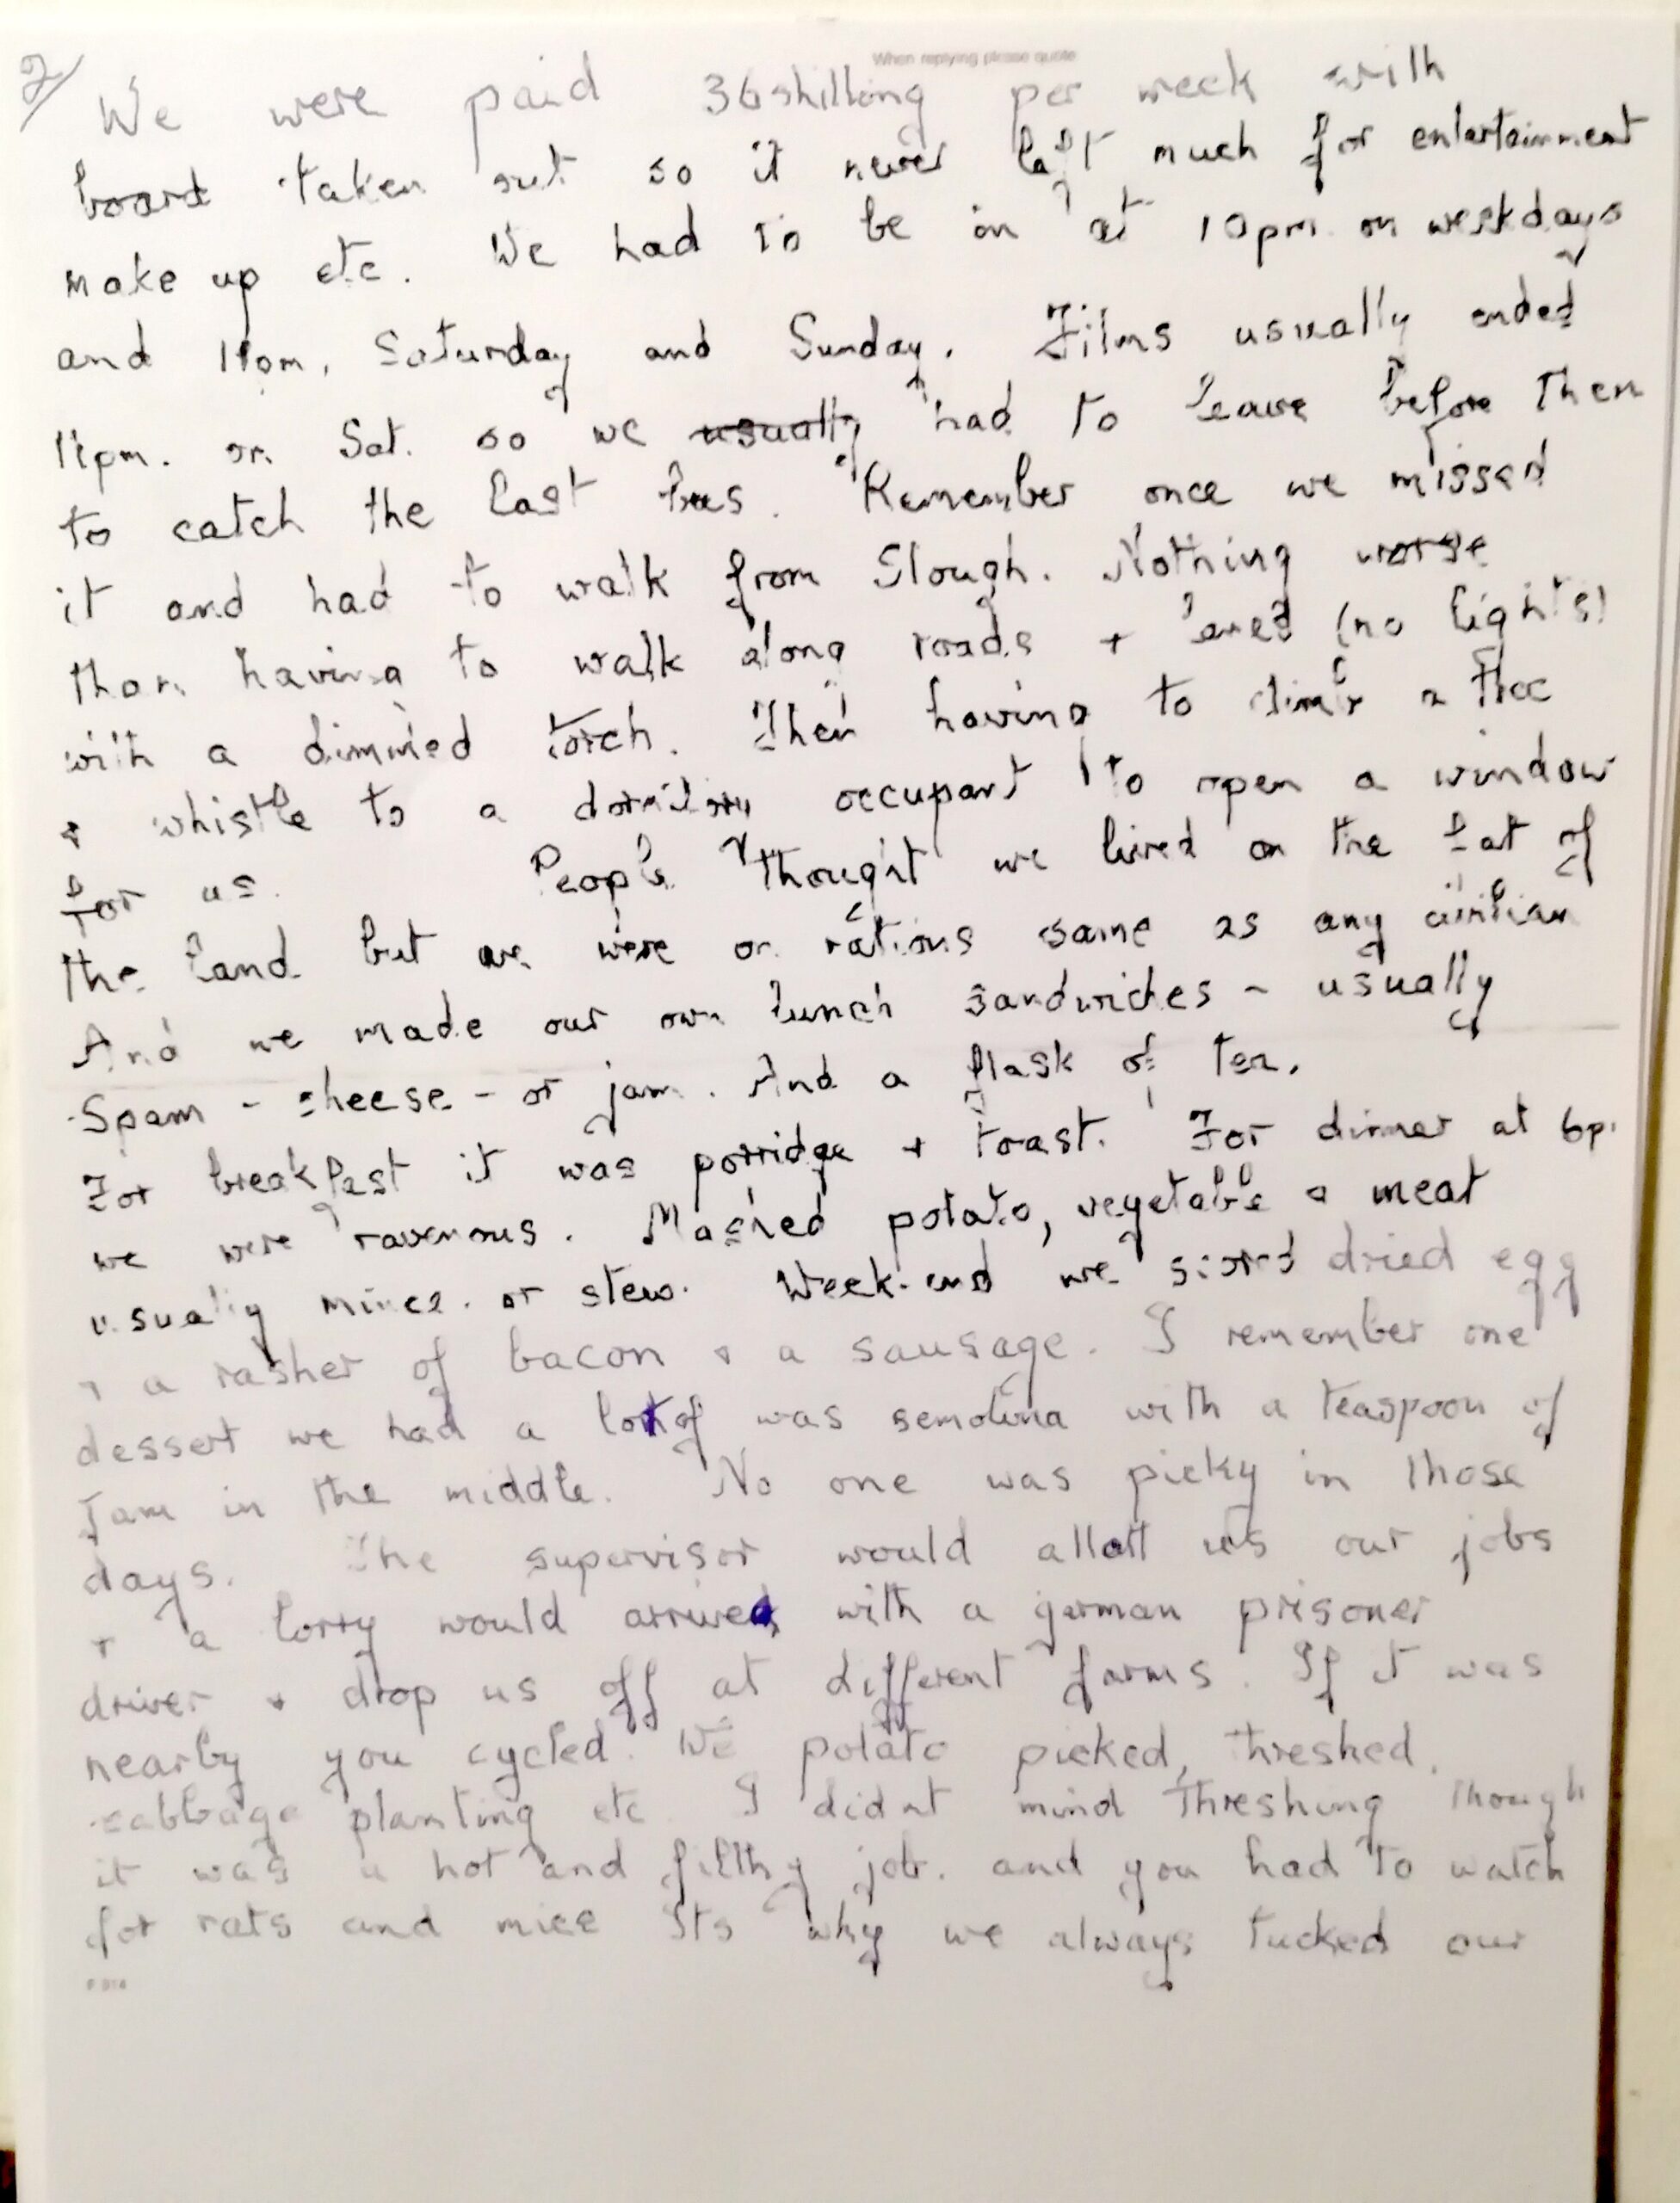 When replying please quote
2/
We were paid 36 shilling per week with
board taken out so it never left much for entertainment
make up etc. We had to be in at 10pm on weekdays
and 11pm, Saturday and Sunday. Films usually ended
11pm. on Sat. so we usually had to leave before then
to catch the last bus. Remember once we missed
it and had to walk from Slough. Nothing worse
than having to walk along roads + lanes (no lights)
with a dimmed torch. Then having to climb a tree
+ whistle to a dormitory occupant to open a window
for us. People thought we lived on the fat of
the land but we were on rations same as any civilian
And we made our own lunch sandwiches - usually
Spam - cheese - or jam. And a flask of tea.
For breakfast it was porridge + toast. For dinner at 6p.
we were ravenous. Mashed potato, vegetable + meat
usually mince. or stew. Week-end we dried egg
+ a rasher of bacon + a sausage. I remember one
dessert we had a lot of was semolina with a teaspoon of
Jam in the middle. No one was picky in those
days. The supervisor would allott us our jobs
+ a lorry would arrive with a german prisoner
driver + drop us off at different farms. If it was
nearby you cycled. We potato picked, threshed,
cabbage planting etc I didnt mind threshing though
it was a hot and filthy job. and you had to watch
for rats and mice Its why we always tucked our